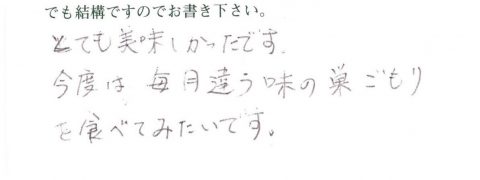 でも結構ですのでお書き下さい。
とても美味しかったです。
今度は毎月違う味の巣ごもり
を食べてみたいです。